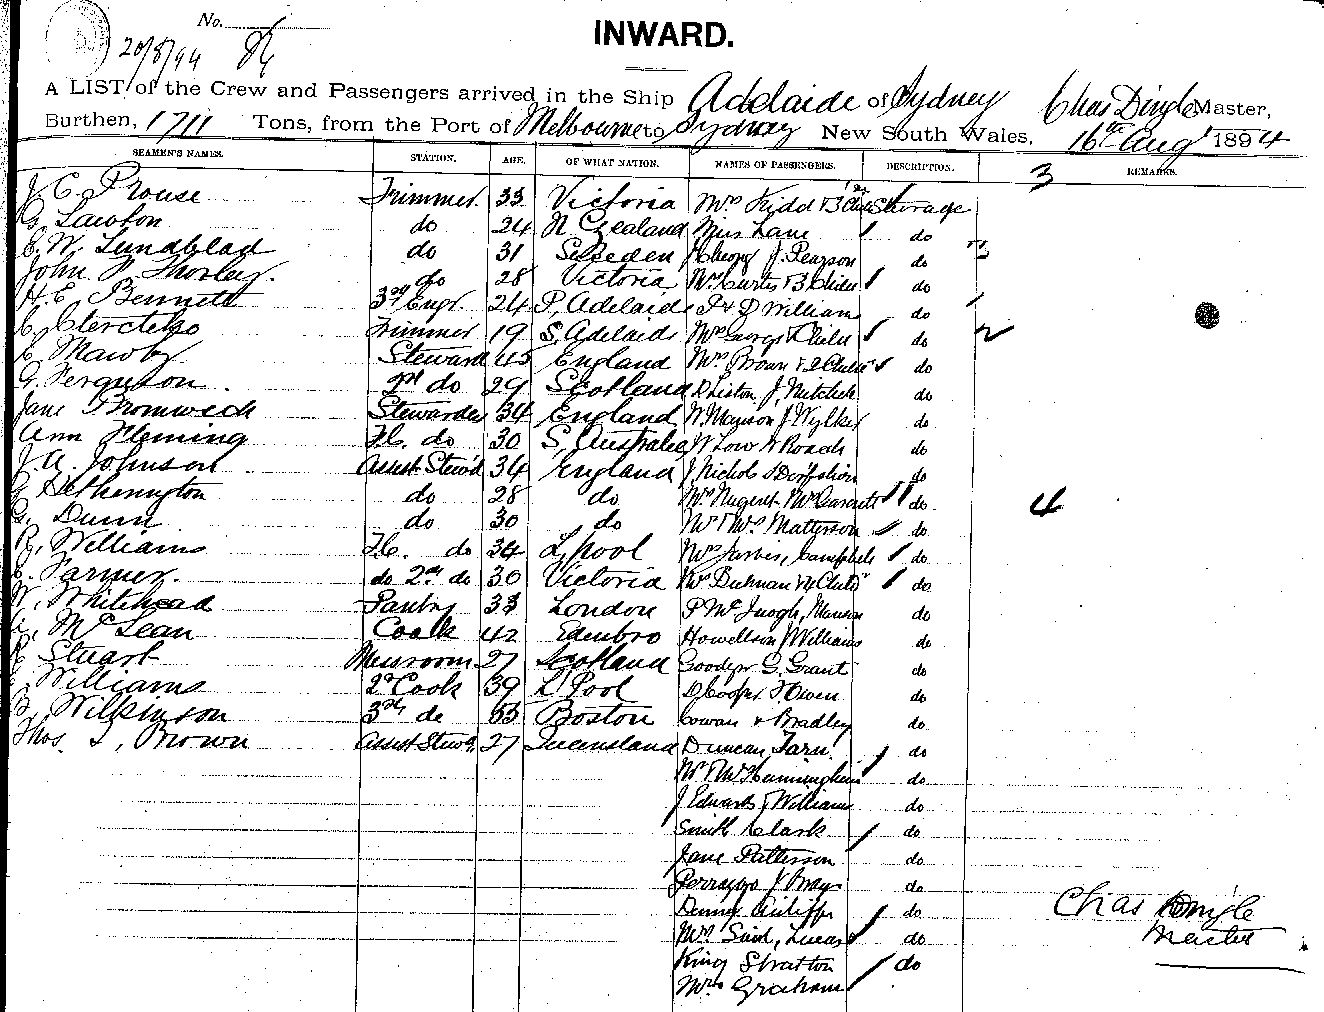 No.
20/8/94
INWARD.
A LIST of the Crew and Passengers arrived in the Ship Adelaide of Sydney Chas Dingle Master,
Burthen, 1711 Tons, from the Port of Melbourne to Sydney New South Wales, 16th Aug 1894
SEAMEN'S NAMES. STATION. AGE. OF WHAT NATION. NAMES OF PASSENGERS. DESCRIPTION. REMARKS.
3
J. C. Prouse Trimmer 33 Victoria Mrs Kidd & 3 Steerage
G. Lawton do 24 N Zealand Miss Lane do
E. W. Lundblad do 31 Sweden J. Pearson do
John P. Thorley do 28 Victoria Mrs Curtis & 3 Child do
H. E. Bennett 3rd Engr 24 P. Adelaide P & D Williams do
C. Trimmer 19 S. Adelaide Mrs George & Child do 2
C. Mawby Steward 45 England Mrs Brown & 2 Child do
G. Ferguson 2nd do 29 Scotland D Liston J. Mitchell do
Jane Bromwich Stewardess 34 England W. Manson J Wylke do
Ann Fleming F.C. do 30 S. Australia W Low W Roach do
J. A. Johnson Assist Stew'd 34 England J Nichols do
Hetherington do 28 do Mrs Nugent Mrs do 4
G. Dunn do 30 do Mr & Mrs Matterson do
R. Williams F.C. do 34 L'pool Mrs Jarvis, Campbell do
Farmer. do 2nd do 30 Victoria Mrs & Child do
W. Whitehead Pantry 33 London P Mc Manson do
Mc Lean Cook 42 Edinbro Howellson J Williams do
Stuart Messroom 27 Scotland G. Grant do
Williams 2d Cook 39 L'Pool D Cooper T Owen do
B. Wilkinson 3rd do 33 Boston Cowan & Bradley do
Thos. L. Brown Assist Stewd 27 Queensland Duncan Tarn do
Mr & Mrs do
J Edwards J Williams do
Smith Clark do
Jane Patterson do
J Bray do
Denny do
Mrs Lucas do
King Stratton do
Mrs Graham
Chas Dingle
Master